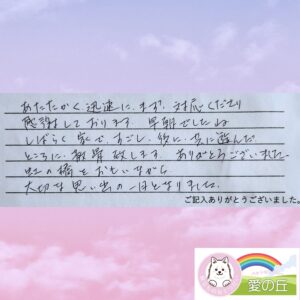 あたたかく、迅速に、まず、対応くださり
感謝しております。早朝でしたね
しばらく家で、すごし、後に、共に遊んだ
ところに、散骨致します。ありがとうございました。
虹の橋を
大切な思い出の一つとなりました。
ご記入ありがとうございました。
愛の丘